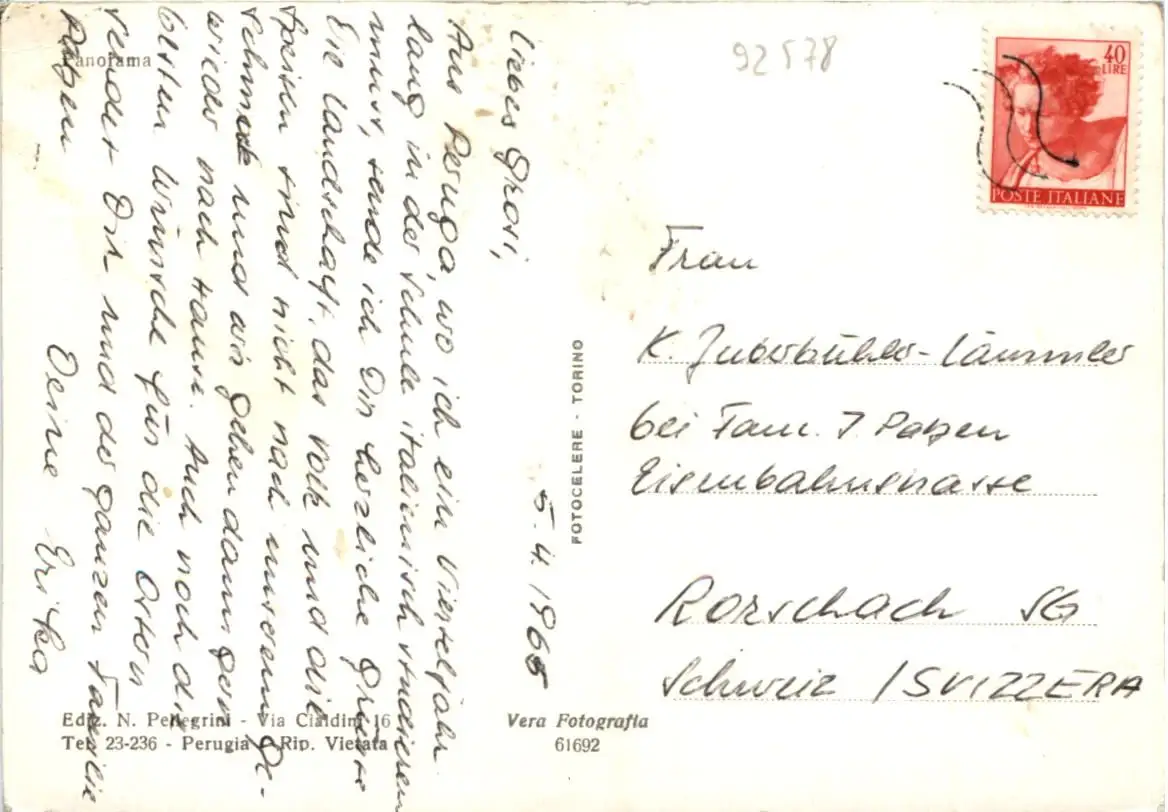 Panorama
92578
40
LIRE
POSTE ITALIANE
Liebes Grosi,
5.4.1965
Aus Perugia, wo ich ein Vierteljahr
lang in der Schule italienisch studieren
muss, sende ich Dir herzliche Grüsse
Die Landschaft, das Volk und die
Speisen sind nicht nach unserem Ge-
schmack und wir gehen dann gern
wieder nach Hause. Auch noch die
besten Wünsche für die Ostern
sendet Dir und der ganzen Familie
Patzen
Deine Erika
FOTOCELERE - TORINO
Frau
K. Zuberbühler-Lämmler
bei Fam. J. Patzen
Eisenbahnstrasse
Rorschach SG
Schweiz / SVIZZERA
Ediz. N. Pellegrini - Via Cialdini 16
Tel. 23-236 - Perugia - Rip. Vietata
Vera Fotografia
61692